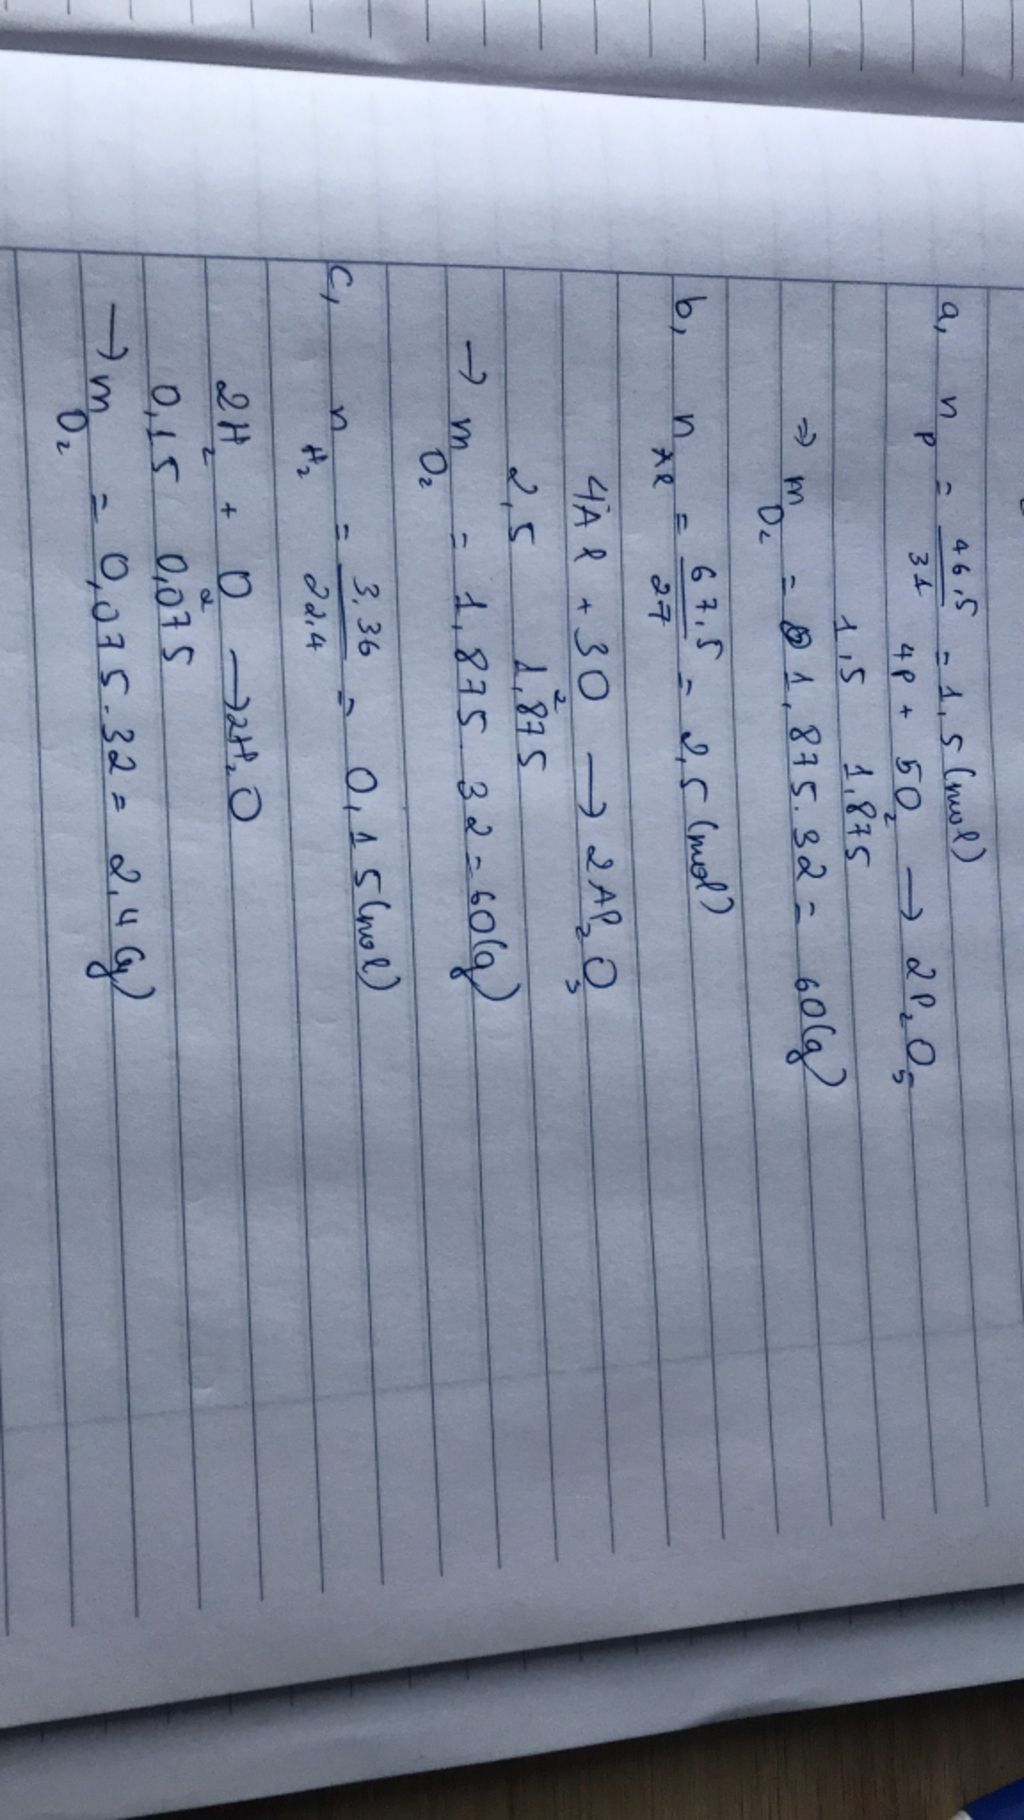 a, n_P = 46,5/31 = 1,5 (mol)
4P + 5O₂ → 2P₂O₅
1,5 1,875
⇒ m_O₂ = 1,875.32 = 60(g)
b, n_Al = 67,5/27 = 2,5 (mol)
4Al + 3O₂ → 2Al₂O₃
2,5 1,875
→ m_O₂ = 1,875.32 = 60(g)
c, n_H₂ = 3,36/22,4 = 0,15 (mol)
2H₂ + O₂ → 2H₂O
0,15 0,075
→ m_O₂ = 0,075.32 = 2,4 (g)